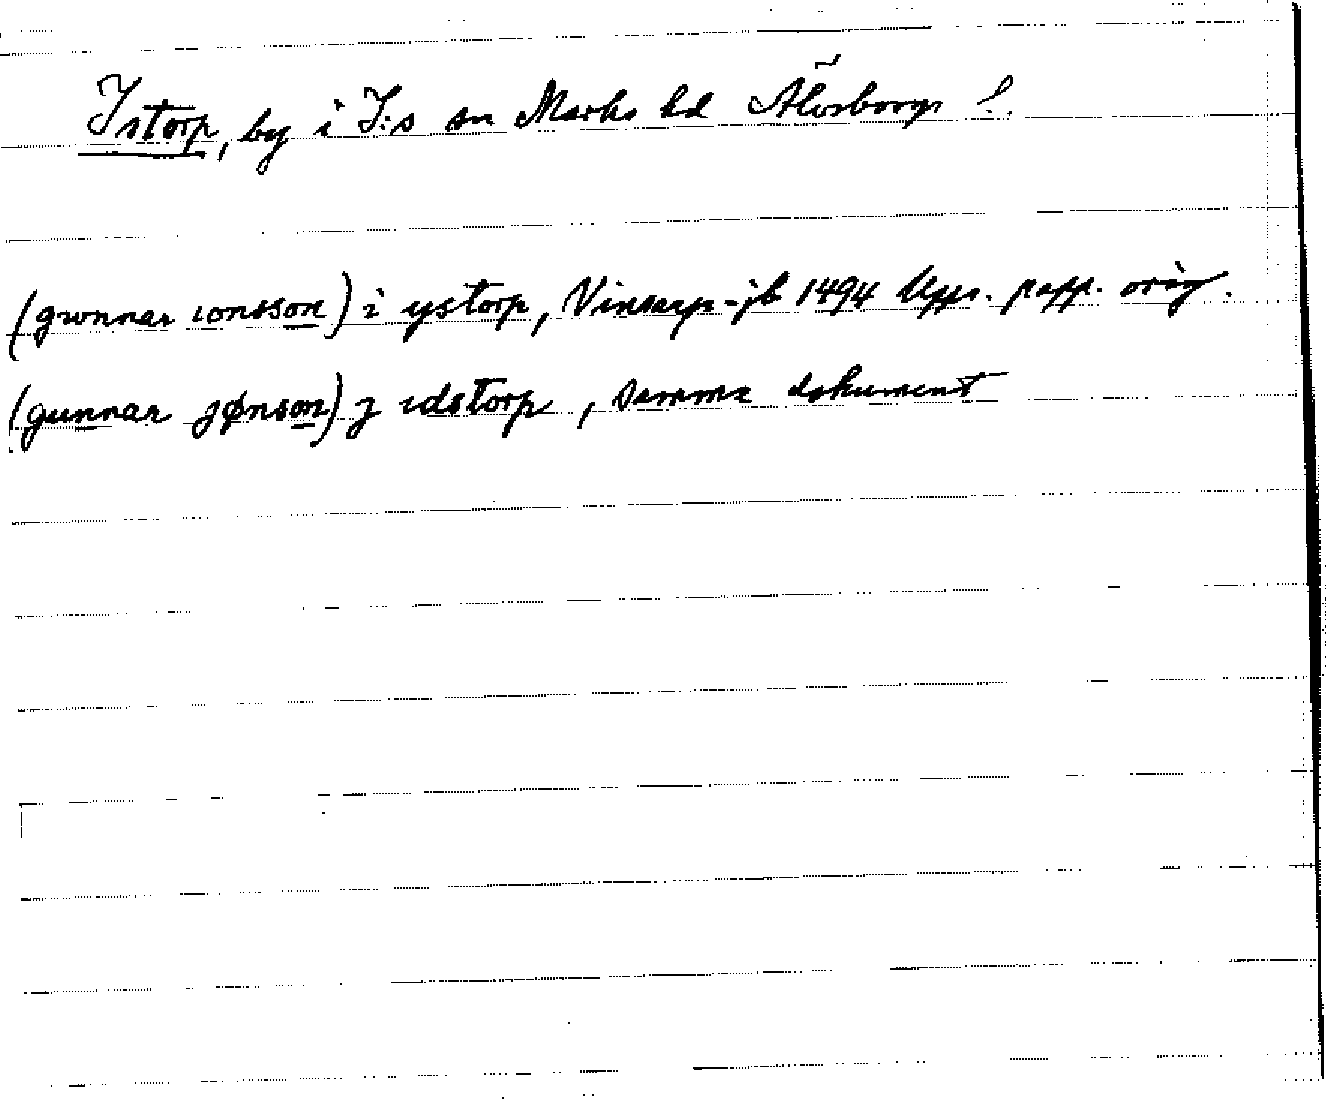 Istorp, by i I:s sn Marks hd Älvsborgs l.
(gwnnar ionsson) i ystorp, Vinsarp-jb 1494 Upps. papp. orig.
(gunnar jønson) j idstorp, samma dokument